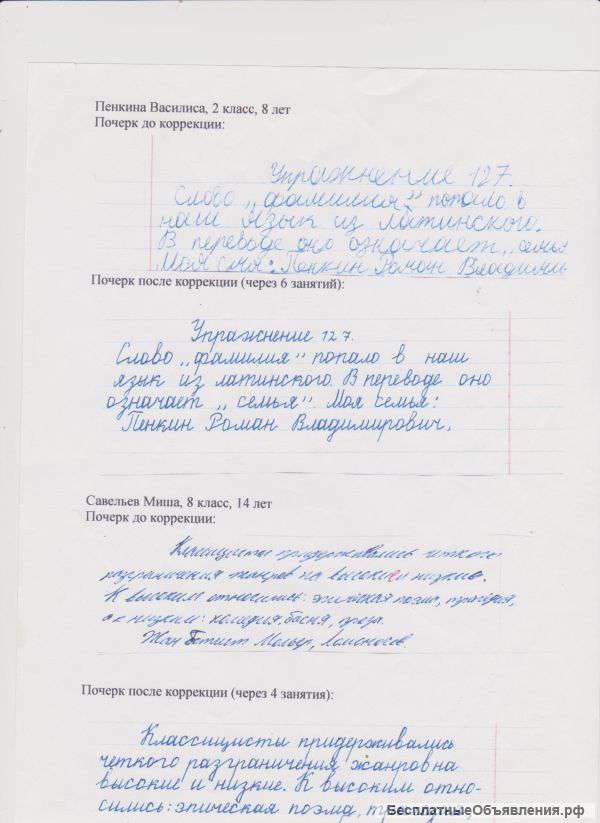 Пенкина Василиса, 2 класс, 8 лет
Почерк до коррекции:
Упражнение 127.
Слово „фамилия" попало в
наш язык из латинского.
В переводе оно означает „семья
Моя смя: Пенкин Роман Владимль
Почерк после коррекции (через 6 занятий):
Упражнение 127.
Слово „фамилия" попало в наш
язык из латинского. В переводе оно
означает „семья". Моя семья:
Пенкин Роман Владимирович.
Савельев Миша, 8 класс, 14 лет
Почерк до коррекции:
Классицисты придерживались четкого
разграничения жанров на высокие и низкие.
К высоким относились: эпическая поэма, трагедия,
а к низким: комедия, басня, проза.
Жан Батист Мольер, Ломоносов.
Почерк после коррекции (через 4 занятия):
Классицисты придерживались
четкого разграничения жанров на
высокие и низкие. К высоким отно-
сились: эпическая поэма,
БесплатныеОбъявления.рф